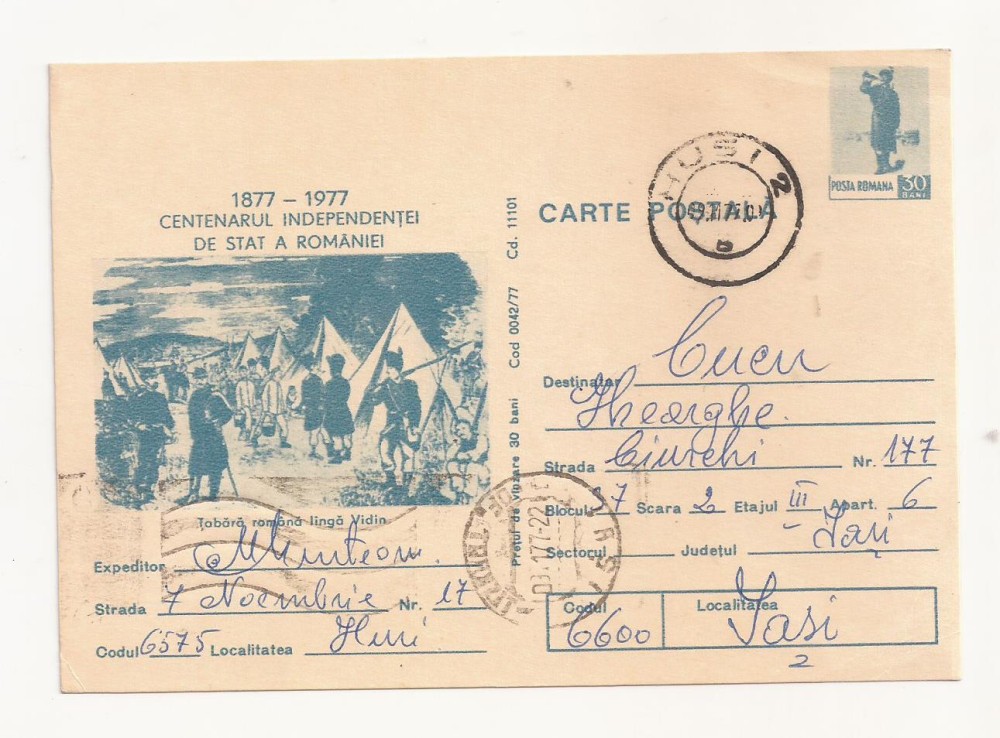 1877 – 1977
CENTENARUL INDEPENDENȚEI
DE STAT A ROMÂNIEI
Tabără română lîngă Vidin
Expeditor Munteanu
Strada 7 Noembrie Nr. 17
Codul 6575 Localitatea Huși
Prețul de vînzare 30 bani Cod 0042/77 Cd. 11101
POSTA ROMANA 30 BANI
HUSI 2
CARTE POȘTALĂ
Destinatar Cucu
Gheorghe.
Strada Ciurchi Nr. 177
Blocul Scara 2 Etajul III Apart. 6
Sectorul Județul Iași
Codul 6600
Localitatea Iasi
2